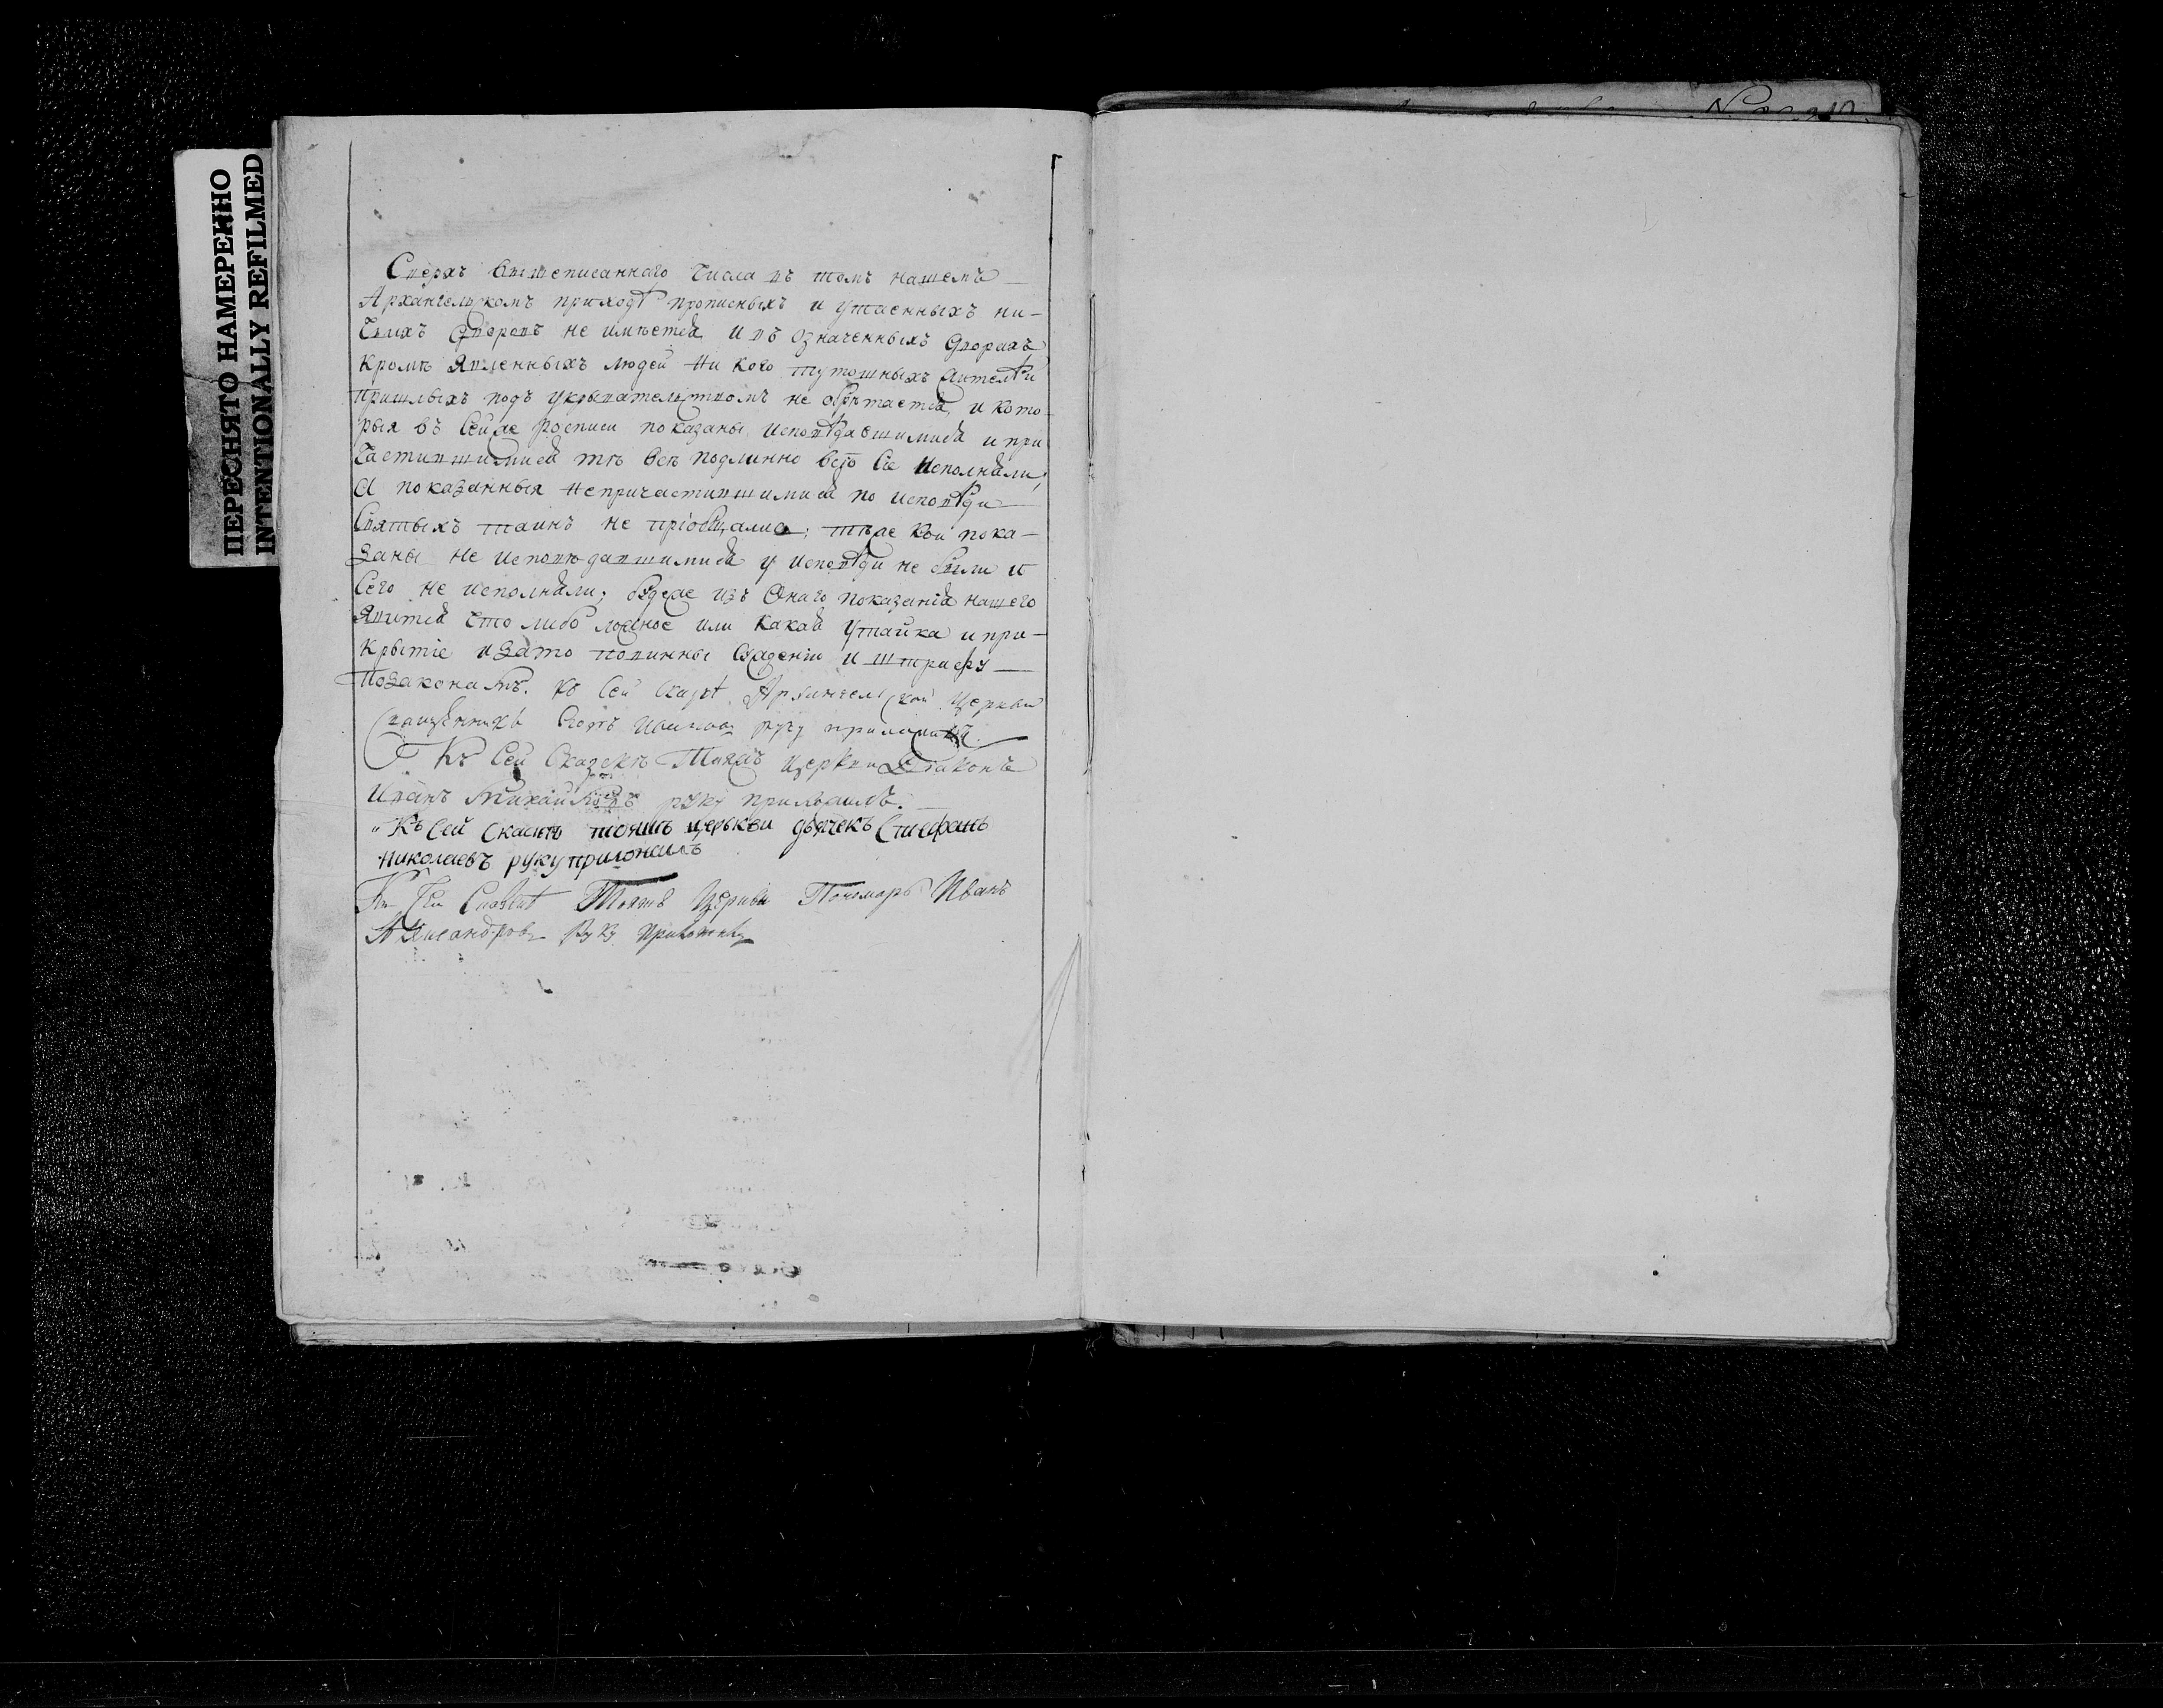 ПЕРЕСНЯТО НАМЕРЕННО
INTENTIONALLY REFILMED
Сверхъ вышеписаннаго числа въ томъ нашемъ
Архангельскомъ приходѣ прописныхъ и утаенныхъ ни-
чьихъ дворовъ не имѣется и въ означенныхъ дворахъ
кромѣ явленныхъ людей ни кого тутошныхъ жителѣй
пришлыхъ подъ укрывательствомъ не обрѣтается, и кото-
рыя въ сейже росписи показаны исповѣдавшимися и при
частившимися тѣ всѣ подлинно всё сіе исполняли;
А показанныя непричастившимися по исповѣди
святыхъ таинъ не пріобщались; тѣже кои пока-
заны не исповѣдавшимися у исповѣди не были и
сего не исполняли; бѫдеже изъ онаго показанія нашего
явится что либо ложное или какая утайка и при-
крытіе и зато повинны сѫждению и штрафу
по законамъ. Къ сей скаскѣ Архангельской церкви
священникъ руку приложилъ.
Къ сей сказскѣ тояжъ церкви діаконъ
Иванъ Михайловъ руку приложилъ.
Къ сей скаскѣ тояжъ церькви дьячекъ Стефанъ
Николаевъ руку приложилъ
Къ сей сказкѣ тояжъ церкви пономарь Иванъ
Александровъ руку приложилъ